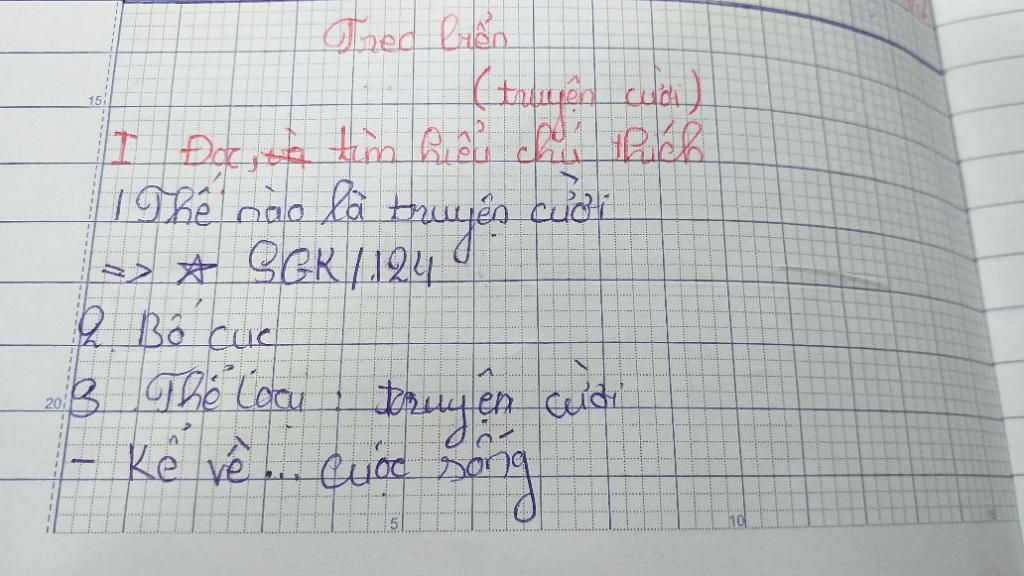 Treo biển
(truyện cười)
I Đọc, và tìm hiểu chú thích
1 Thế nào là truyện cười
=> ☆ SGK/124
2. Bố cục
3 Thể loại : truyện cười
- Kể về... cuộc sống
15
20
5
10